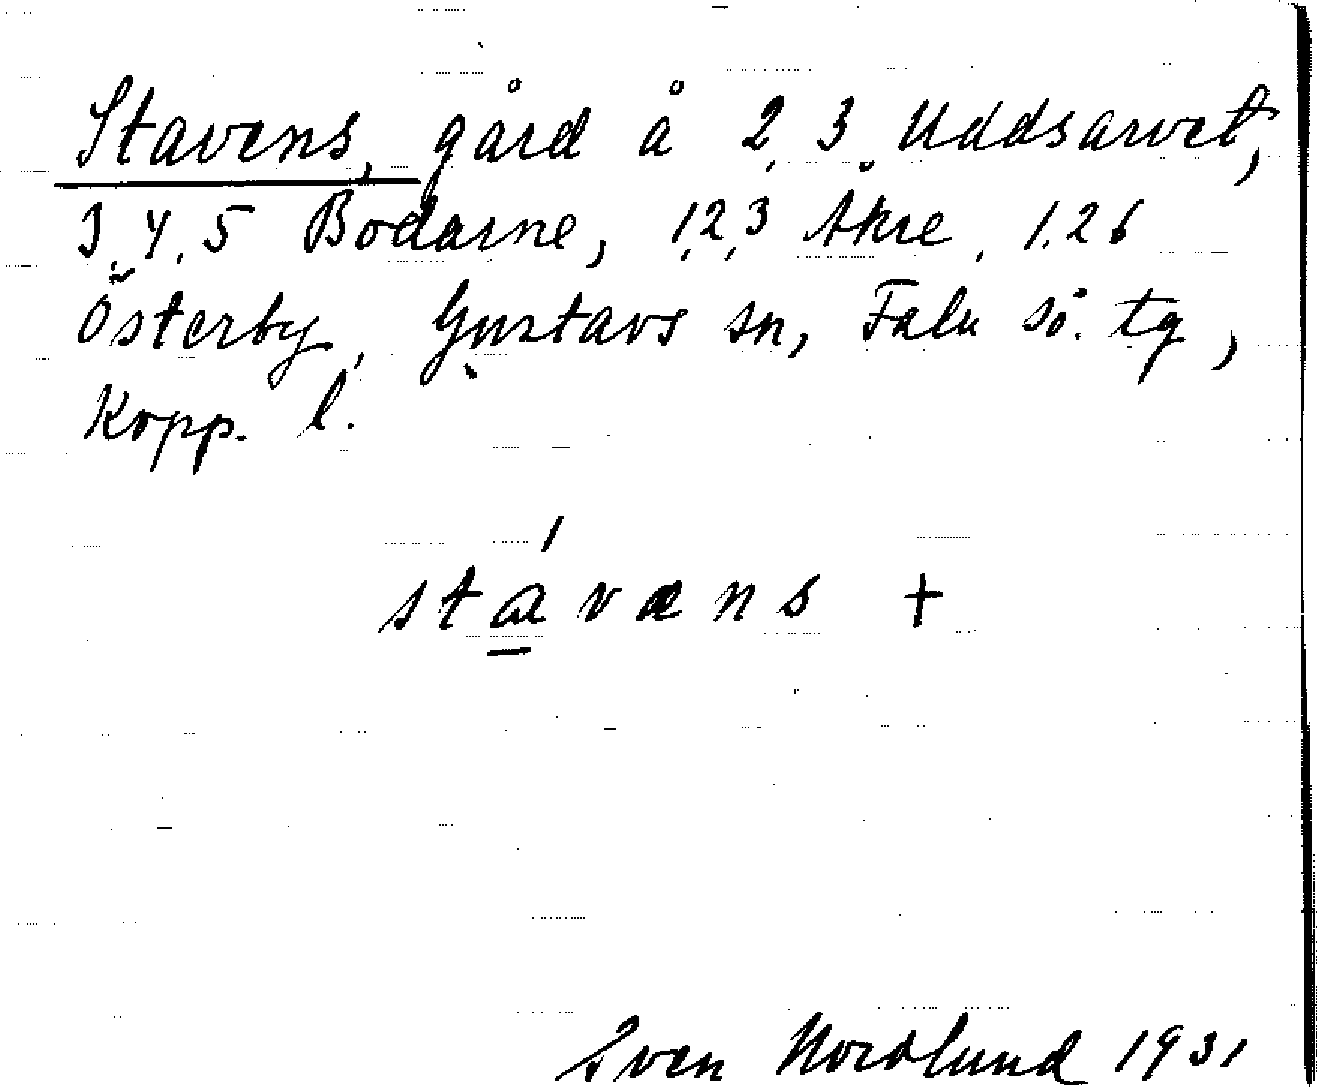 Stavens, gård å 2, 3 Uddsarvet,
3, 4, 5 Bodarne, 1,2,3 Åkre, 1.26
Österby, Gustavs sn, Falu sö. tg,
Kopp. l.
stávæns +
Sven Nordlund 1931